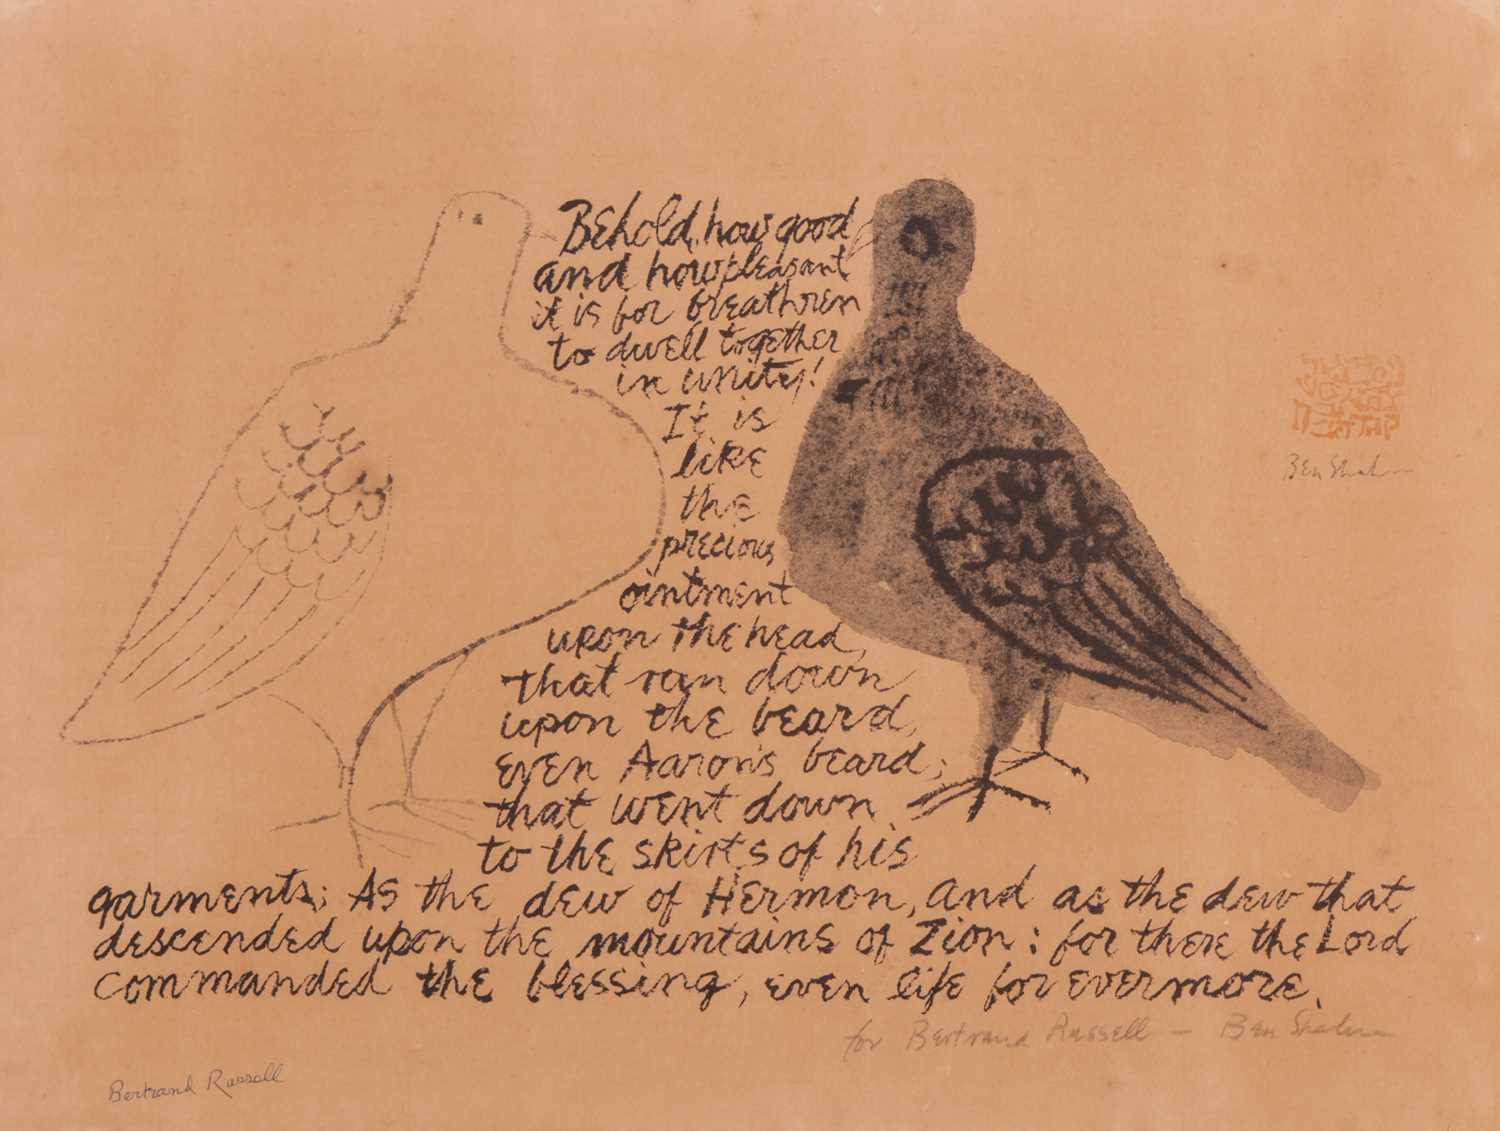 Behold, how good
and how pleasant
it is for breathren
to dwell together
in unity!
It is
like
the
precious
ointment
upon the head,
that ran down
upon the beard,
even Aaron's beard;
that went down
to the skirts of his
garments; As the dew of Hermon, and as the dew that
descended upon the mountains of Zion: for there the Lord
commanded the blessing, even life for evermore.
Ben Shahn
for Bertrand Russell — Ben Shahn
Bertrand Russell